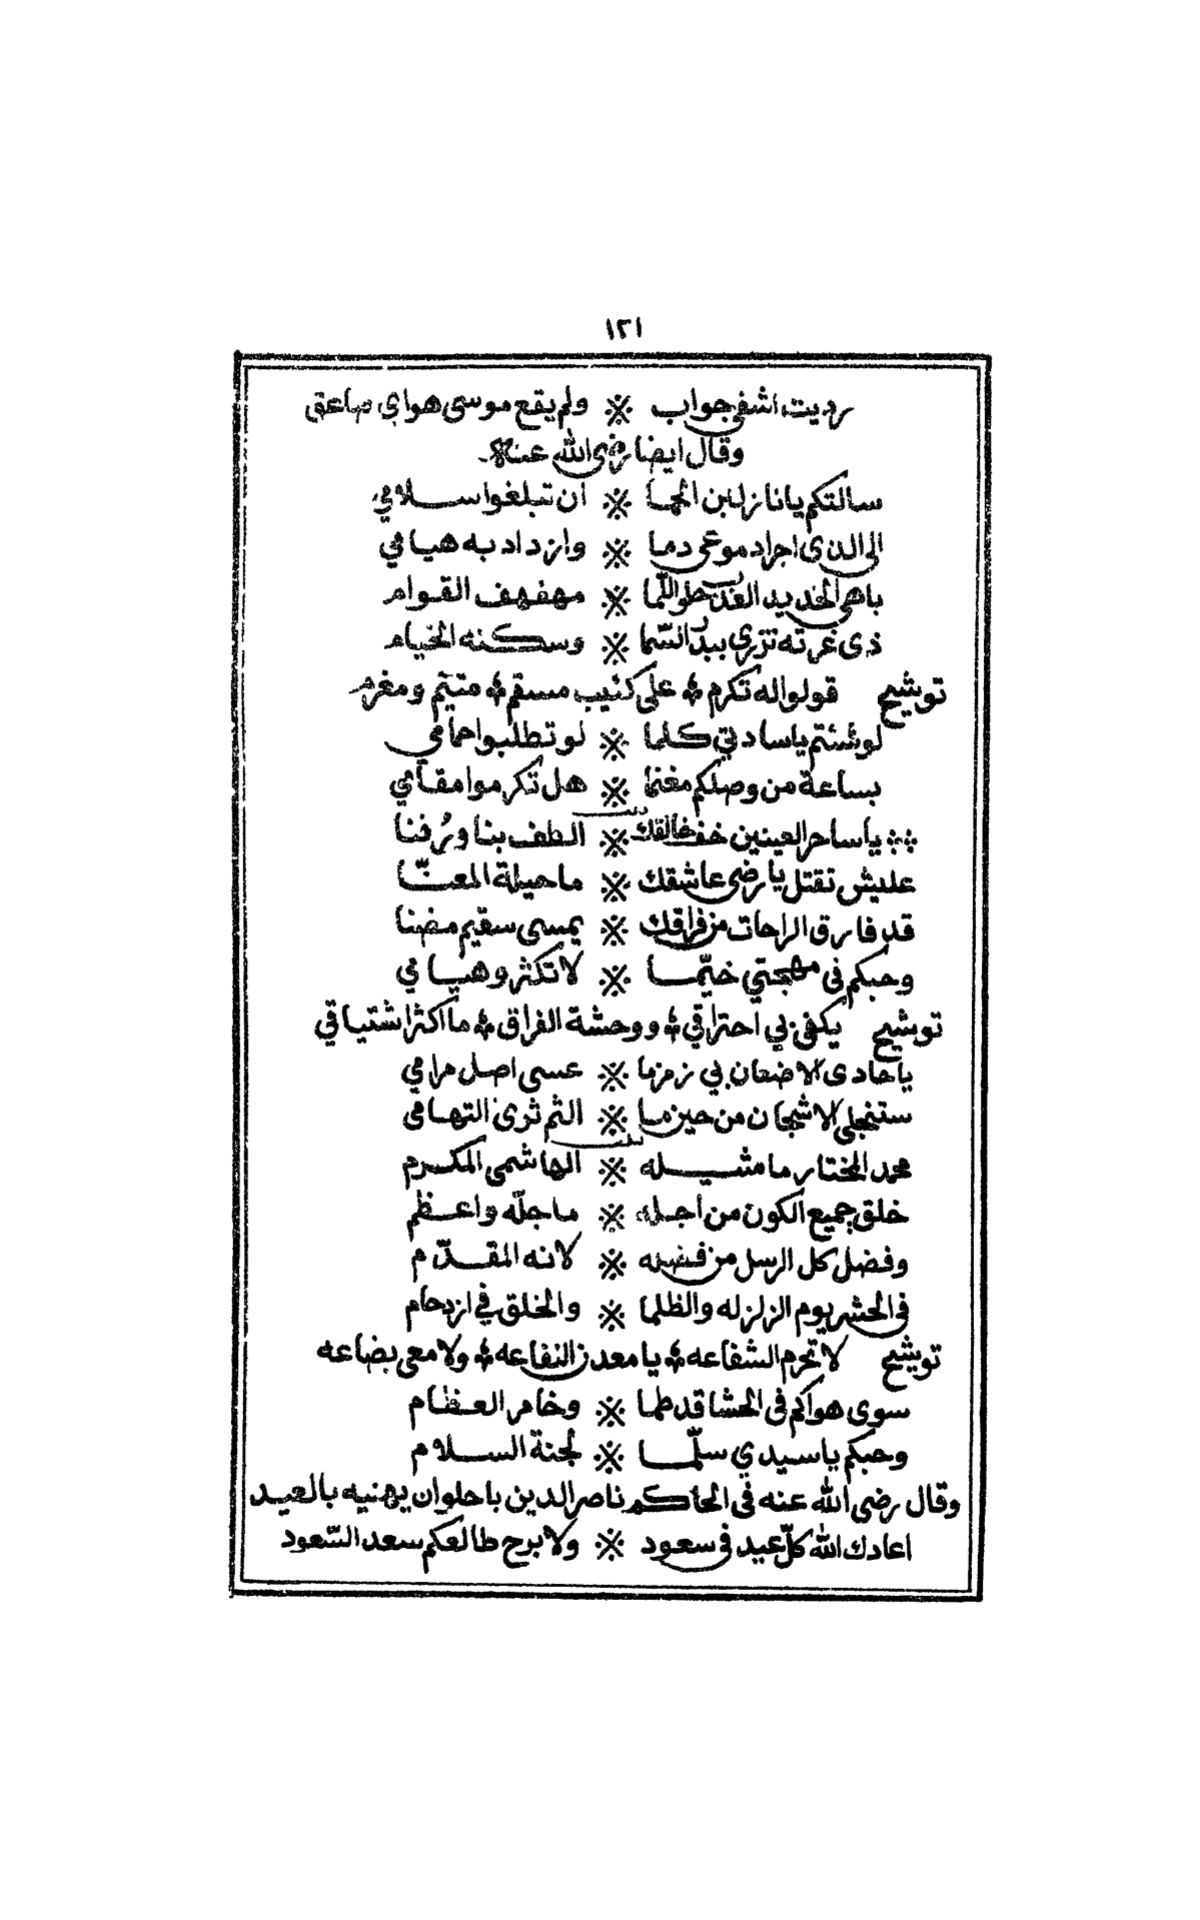 ١٢١
رديت اشفى جواب ※ ولم يقع موسى هواي صاعق
وقال ايضا رضى الله عنه
سالتكم يا نازلين الحما ※ ان تبلغوا سلامي
الى الذى اجراد موعى دما ※ وازداد به هيامي
باهى الخديد العذب حلو اللما ※ مهفهف القوام
ذى غرته تزري ببدر السّما ※ وسكنه الخيام
توشيح قولوا له تكرم ※ على كئيب مسقم ※ متيّم ومغرم
لو شئتم يا سادتي كلما ※ لو تطلبوا حمامي
بساعة من وصلكم مغنما ※ هل تكرموا مقامي
يا ساحر العينين خف خالقك ※ الطف بنا ورُفنا
عليش تقتل يا رضى عاشقك ※ ما حيلة المعنّا
قد فارق الراحات من فراقك ※ يمسى سقيم مضنا
وحبكم فى مهجتي خيّما ※ لا تكثر وهيامي
توشيح يكفى بي احتراقي ※ ووحشة الفراق ※ ما اكثر اشتياقي
يا حادى الاضعان بي زمزما ※ عسى اصل مرامي
ستنجلى الاشجان من حين ما ※ الثم ثرى التهامى
محمد المختار ما مثيله ※ الهاشمى المكرم
خلق جميع الكون من اجله ※ ما جلّه واعظم
وفضل كل الرسل من فضله ※ لانه المقدّم
فى الحشر يوم الزلزله والظلما ※ والخلق في ازدحام
توشيح لا تحرم الشفاعه ※ يا معدن النفاعه ※ ولا معى بضاعه
سوى هواكم فى الحشا قد طما ※ وخامر العظام
وحبكم يا سيدي سلّما ※ لجنة السلام
وقال رضى الله عنه فى الحاكم ناصر الدين باحلوان يهنيه بالعيد
اعادك الله كلّ عيد فى سعود ※ ولا برح طالعكم سعد السّعود